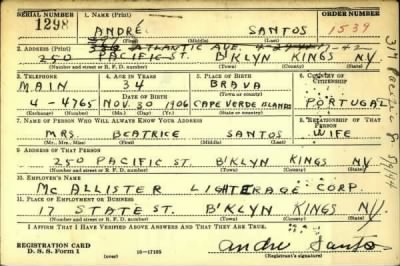 SERIAL NUMBER 1. NAME (Print) ORDER NUMBER
1298 ANDRÉ SANTOS 1539
(First) (Middle) (Last)
2. ADDRESS (Print) ATLANTIC AVE.
250 PACIFIC ST. B'KLYN KINGS NY
(Number and street or R. F. D. number) (Town) (County) (State)
3. TELEPHONE 4. AGE IN YEARS 5. PLACE OF BIRTH 6. COUNTRY OF CITIZENSHIP
MAIN 34 BRAVA
DATE OF BIRTH
4-4765 NOV. 30 1906 CAPE VERDE ISLANDS PORTUGAL
(Exchange) (Number) (Mo.) (Day) (Yr.) (Town or county) (State or country)
7. NAME OF PERSON WHO WILL ALWAYS KNOW YOUR ADDRESS 8. RELATIONSHIP OF THAT PERSON
MRS. BEATRICE SANTOS WIFE
(Mr., Mrs., Miss) (First) (Middle) (Last)
9. ADDRESS OF THAT PERSON
250 PACIFIC ST. B'KLYN KINGS NY
(Number and street or R. F. D. number) (Town) (County) (State)
10. EMPLOYER'S NAME
MCALLISTER LIGHTERAGE CORP.
11. PLACE OF EMPLOYMENT OR BUSINESS
17 STATE ST. B'KLYN KINGS NY.
(Number and street or R. F. D. number) (Town) (County) (State)
I AFFIRM THAT I HAVE VERIFIED ABOVE ANSWERS AND THAT THEY ARE TRUE.
REGISTRATION CARD
D. S. S. Form 1 16—17105 Andre Santos
(over) (Registrant's signature)